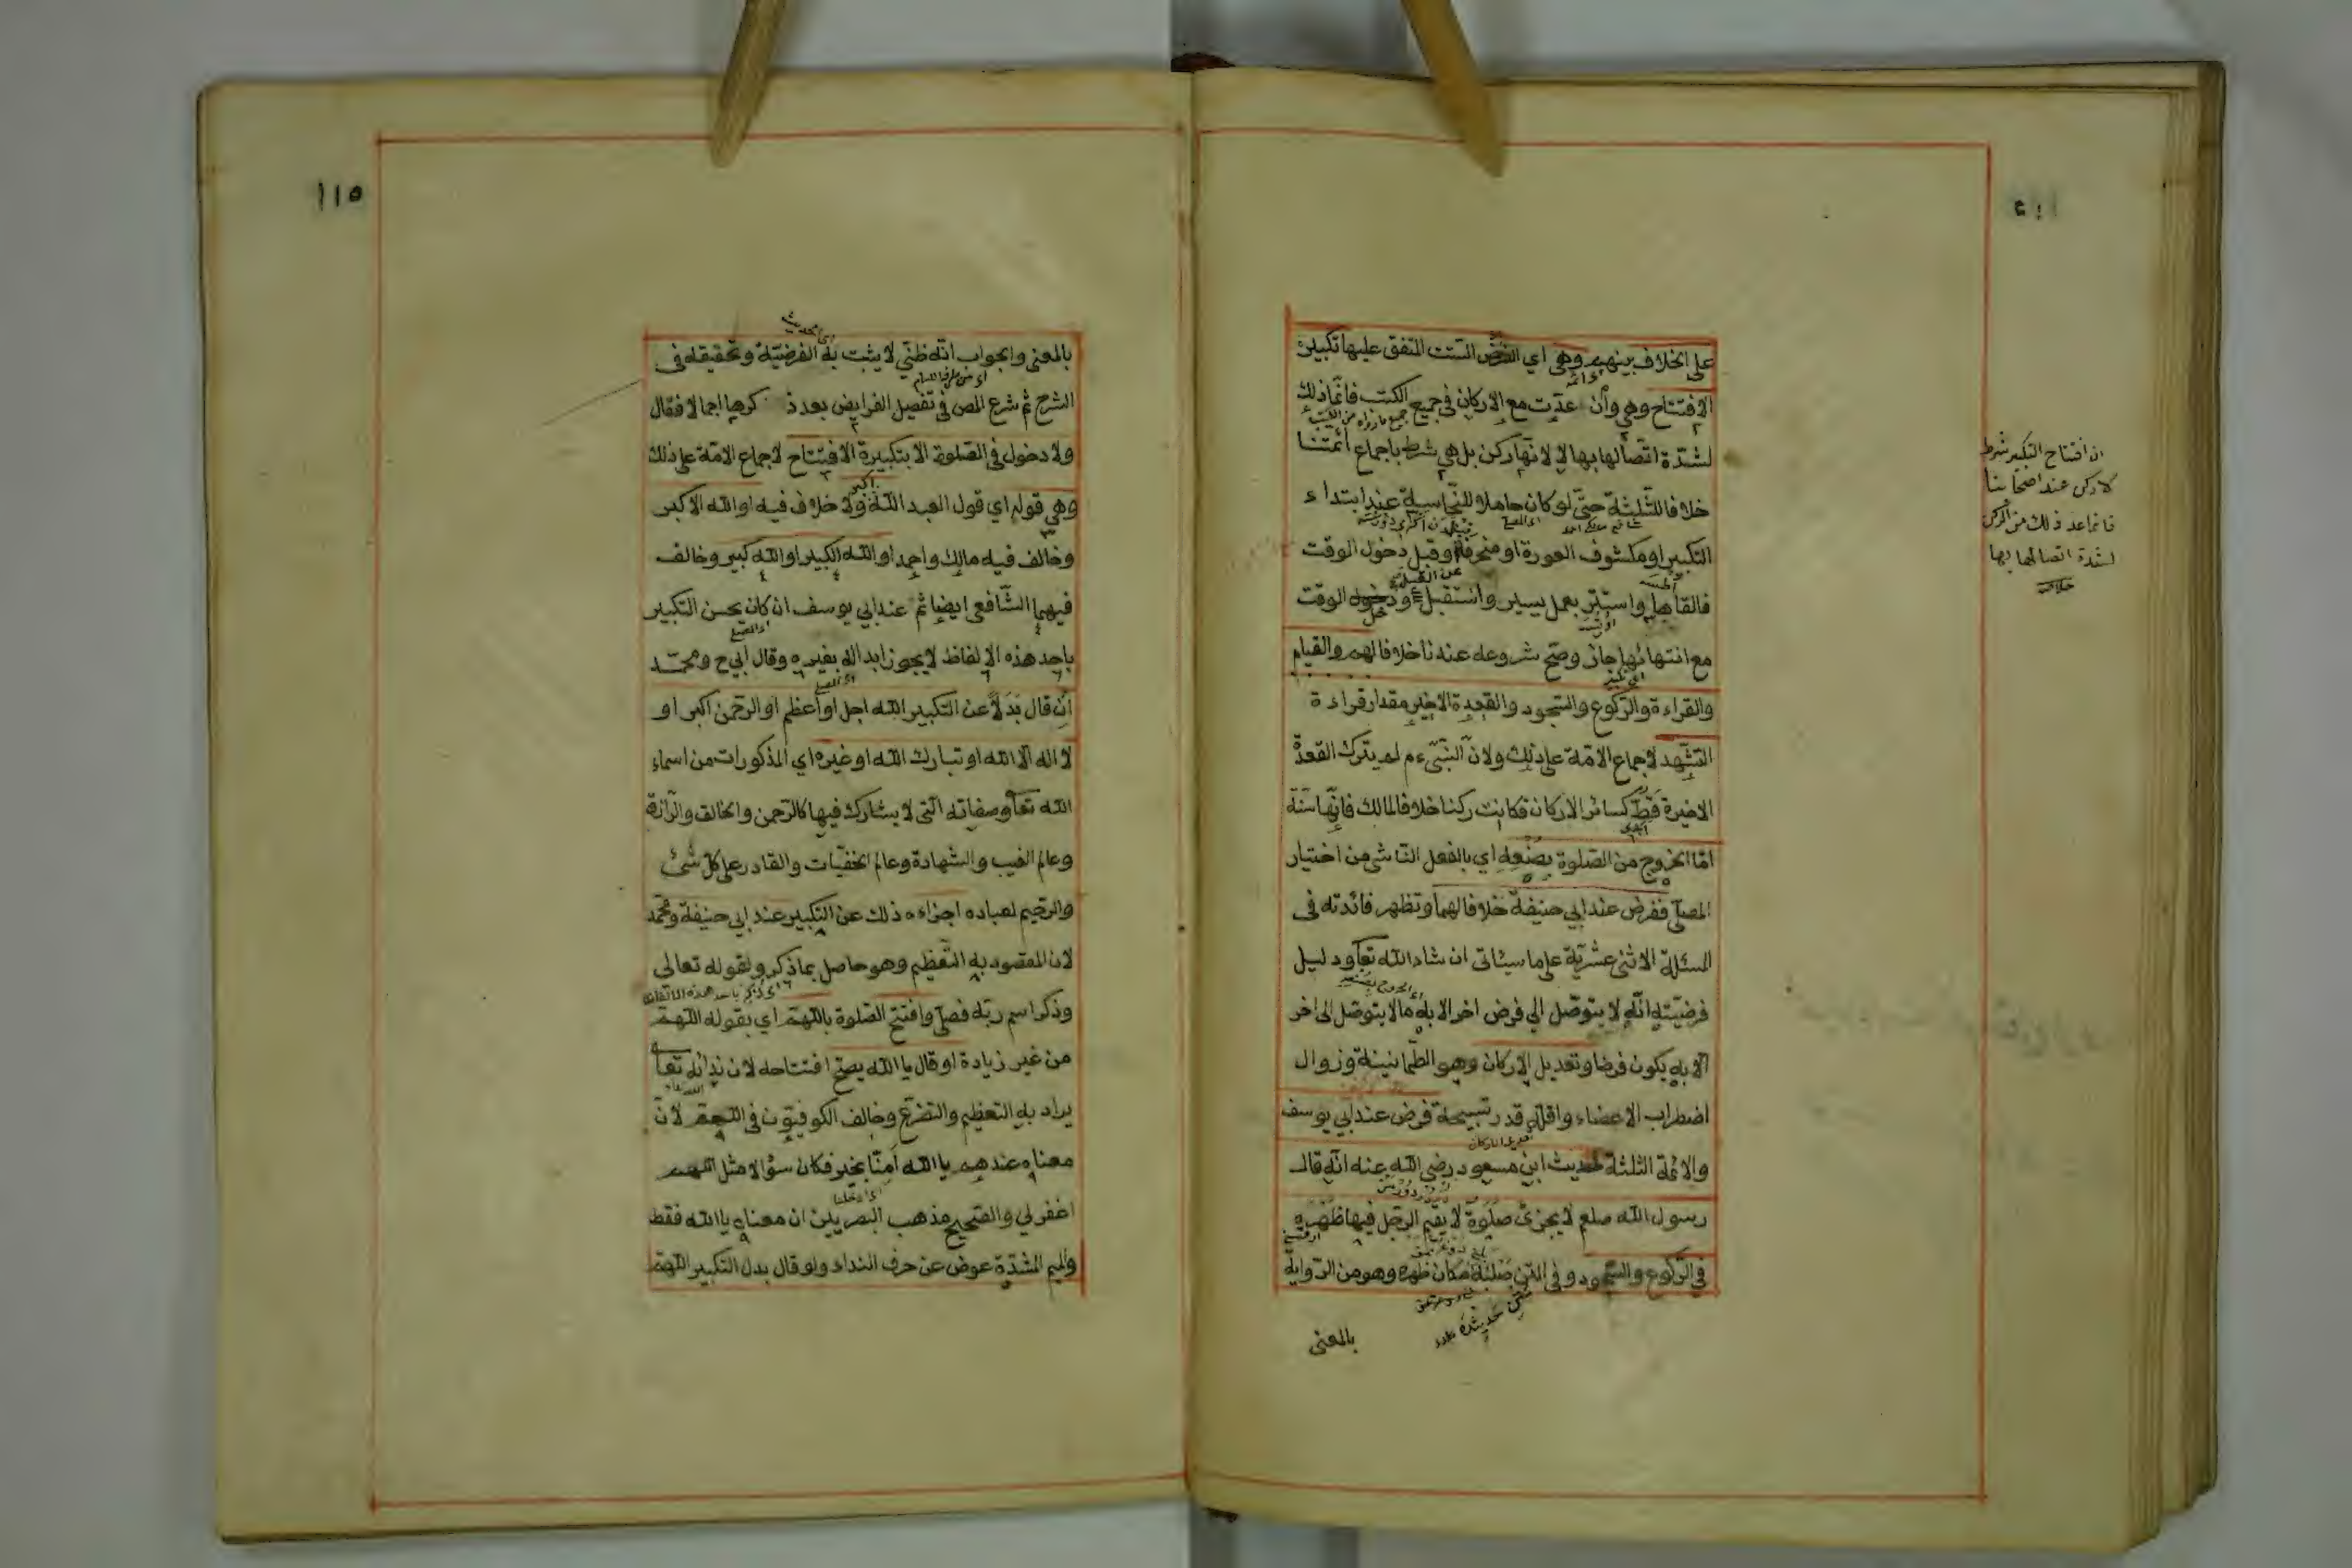 على الخلاف بينهم وهي اي الست المتفق عليها تكبيرة
الافتتاح وهي وأن عدّت مع الاركان في جميع الكتب فانما ذلك
لشدّة اتصالها بها لا لانها ركن بل هي شرط باجماع ائمتنا
خلافا للثلثة حتّى لو كان حاملا للنجاسة عند ابتداء
التكبير او مكشوف العورة او منحرفا او قبل دخول الوقت
فالقاها واستتر بعمل يسير واستقبل ودخل الوقت
مع انتهائها جاز وصحّ شروعه عندنا خلافا لهم والقيام
والقراءة والرّكوع والسّجود والقعدة الاخيرة مقدار قراءة
التشهد لاجماع الامّة على ذلك ولانّ النّبيّ ءم لم يترك القعدة
الاخيرة قطّ كسائر الاركان فكانت ركنا خلافا لمالك فانّها سنّة
امّا الخروج من الصّلوة بصنعه اي بالفعل النّاشي من اختيار
المصلّي ففرض عند ابي حنيفة خلافا لهما وتظهر فائدته في
المسئلة الاثنى عشريّة على ما سيئاتى ان شاء الله تعا ودليل
فرضيّته انّه لا يتوصّل الى فرض اخر الا به وما لا يتوصّل الى اخر
الّا به يكون فرضا وتعديل الاركان وهو الطّمانينة وزوال
اضطراب الاعضاء واقلّه قدر تسبيحة فرض عند ابي يوسف
والائمّة الثلثة لحديث ابن مسعود رضي الله عنه انّه قال
رسول الله صلعم لا يجزئ صلوة لا يقيم الرّجل فيها ظهره
في الرّكوع والسّجود وفي المتن صلبه مكان ظهره وهو من الرّواية
بالمعنى
ان افتتاح التكبير شرط
لا ركن عند اصحابنا
فانما عد ذلك من الركن
لشدة اتصالها بها
١١٥
بالمعنى والجواب انّه ظنّي لا يثبت به الفرضيّة وتحقيقه في
الشرح ثمّ شرع المص في تفصيل الفرايض بعد ذكرها اجمالا فقال
ولا دخول في الصّلوة الا بتكبيرة الافتتاح لاجماع الامّة على ذلك
وهي قوله اي قول العبد الله اكبر ولا خلاف فيه او الله الاكبر
وخالف فيه مالك واحمد او الله الكبير او الله كبير وخالف
فيهما الشّافعي ايضا ثمّ عند ابي يوسف ان كان يحسن التكبير
باحد هذه الالفاظ لا يجوز ابداله بغيره وقال ابي ح ومحمّد
ان قال بدلا عن التكبير الله اجل او اعظم او الرّحمن اكبر او
لا اله الّا الله او تبارك الله او غيره اي المذكورات من اسماء
الله تعا وصفاته الّتي لا يشارك فيها كالرّحمن والخالق والرّازق
وعالم الغيب والشّهادة وعالم الخفيّات والقادر على كلّ شئ
والرّحيم لعباده اجزاءه ذلك عن التكبير عند ابي حنيفة ومحمّد
لان المقصود به التّعظيم وهو حاصل بما ذكر ولقوله تعالى
وذكر اسم ربّه فصلّى وافتتح الصّلوة باللّهمّ اي بقوله اللّهمّ
من غير زيادة او قال يا الله يصحّ افتتاحه لان ندائه تعا
يراد به التعظيم والتضرّع وخالف الكوفيّون في اللّهمّ لانّ
معناه عندهم يا الله آمنّا بخير فكان سؤالا مثل اللهم
اغفر لي والصّحيح مذهب البصريين ان معناه يا الله فقط
والميم المشدّدة عوض عن حرف النداء ولو قال بدل التكبير اللّهمّ